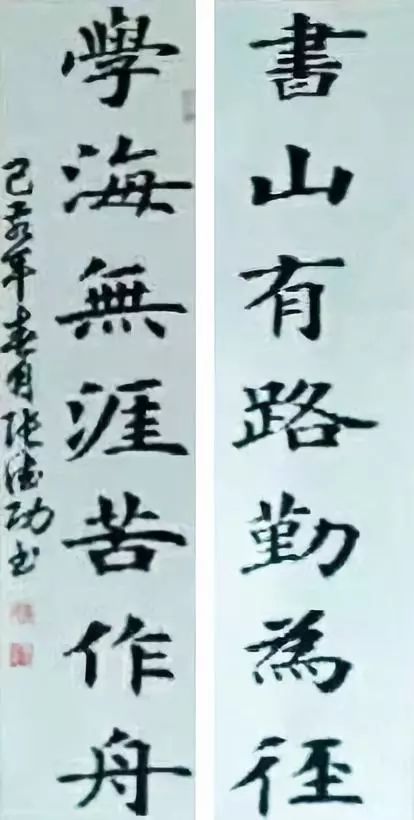 書山有路勤為徑
學海無涯苦作舟
己亥年春月張德功书